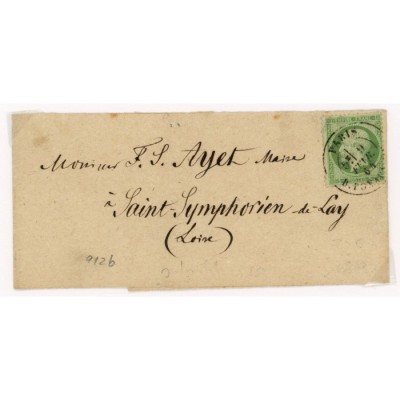 PARIS
Monsieur F. S. Ayet Maire
à Saint-Symphorien-de-Lay
(Loire)
912b